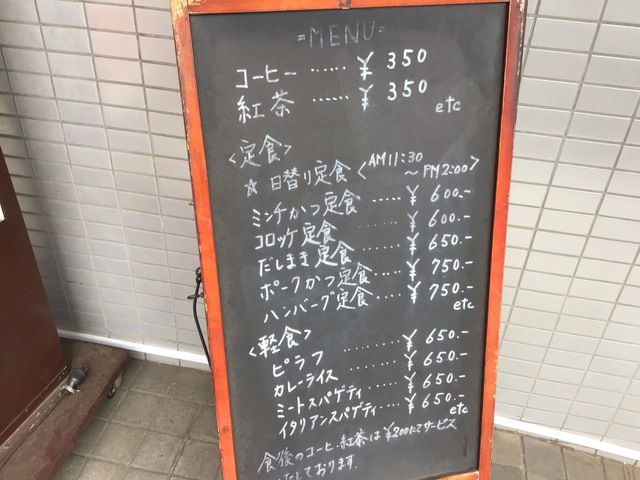 =MENU=
コーヒー ...... ¥350
紅茶 ...... ¥350
etc
<定食>
☆日替り定食<AM11:30
〜PM2:00>
ミンチかつ定食 ..... ¥600.-
コロッケ定食 ..... ¥600.-
だしまき定食 ..... ¥650.-
ポークかつ定食 ..... ¥750.-
ハンバーグ定食 ..... ¥750.-
etc
<軽食>
ピラフ ........ ¥650.-
カレーライス ...... ¥650.-
ミートスパゲティ ..... ¥650.-
イタリアンスパゲティ .... ¥650.-
etc
食後のコーヒ.紅茶は¥200にてサービス
たしております.